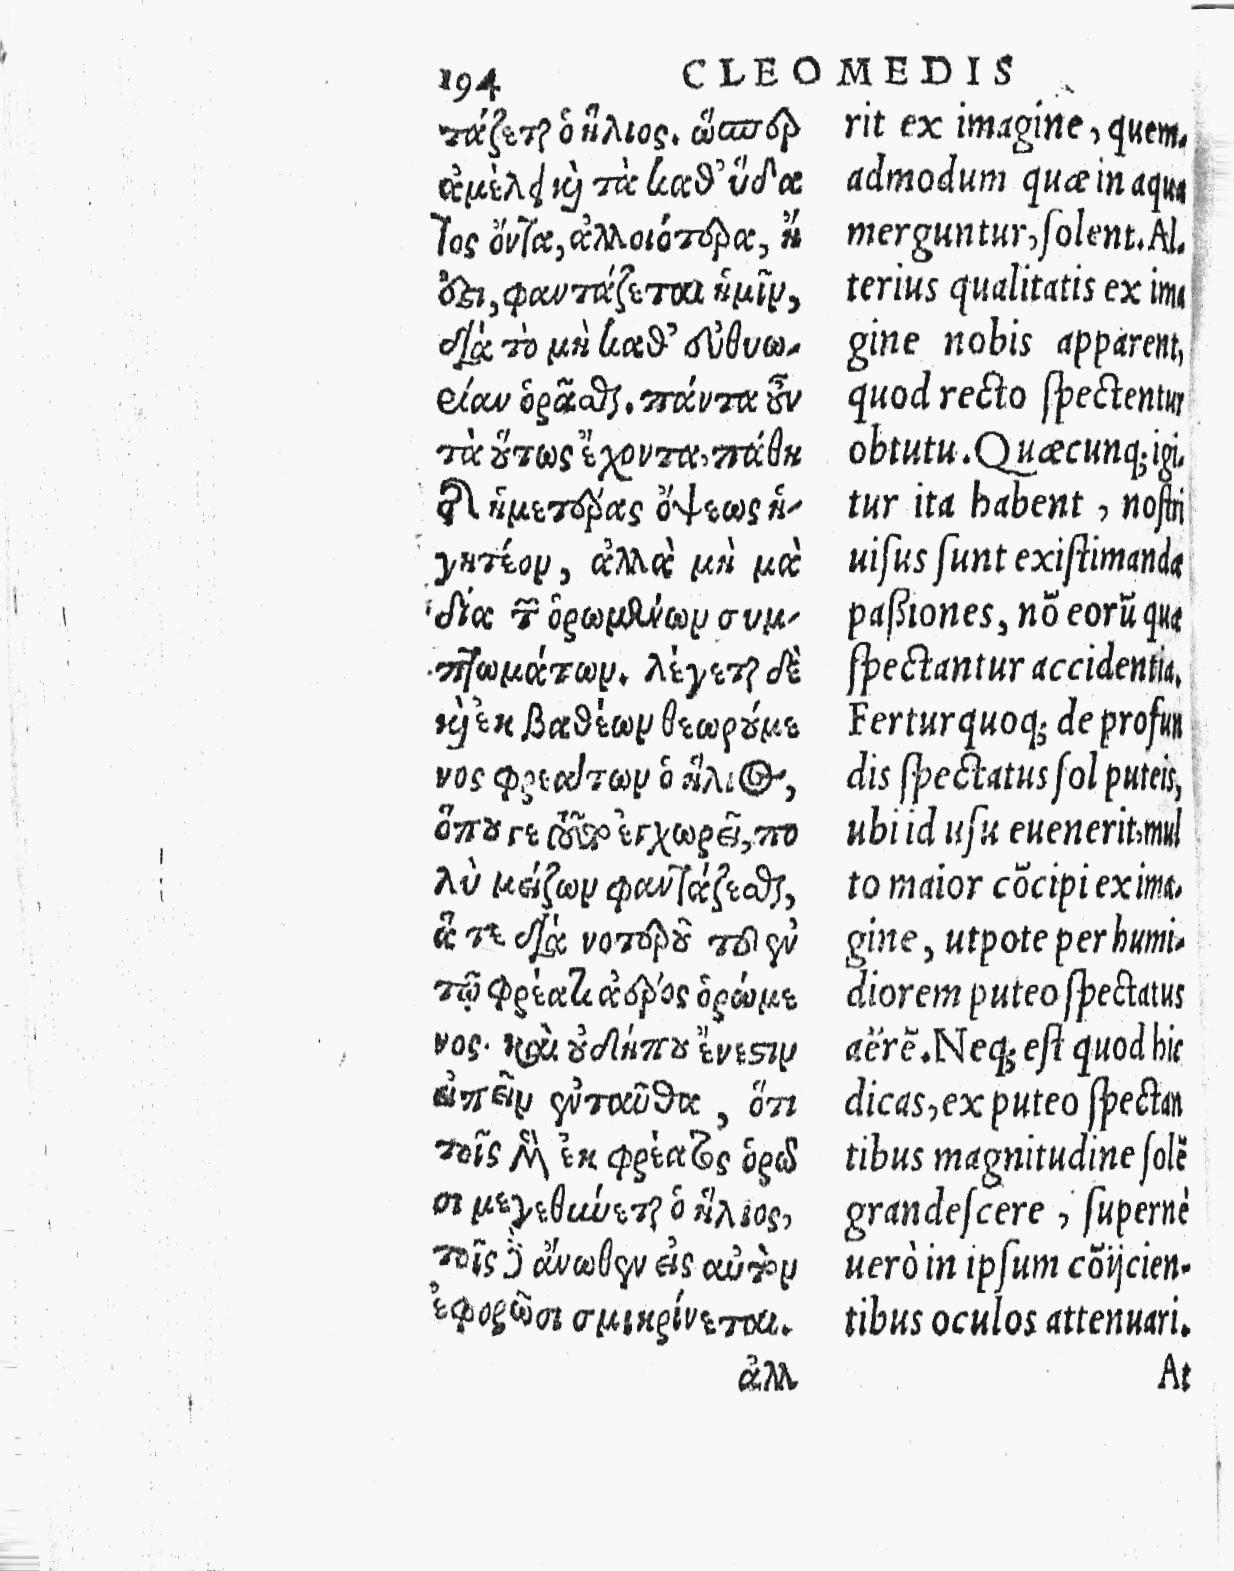 194 CLEOMEDIS
τάζεται ὁ ἥλιος. ὥσπερ
ἀμέλει καὶ τὰ καθ' ὕδα
τος ὄντα, ἀλλοιότερα, ἢ
ὅτι, φαντάζεται ἡμῖν,
διὰ τὸ μὴ καθ' εὐθυω-
ρίαν ὁρᾶσθαι. πάντα οὖν
τὰ οὕτως ἔχοντα, πάθη
τῆς ἡμετέρας ὄψεως ἡ-
γητέον, ἀλλὰ μὴ μὰ
δία τῶν ὁρωμένων συμ-
πτωμάτων. λέγεται δὲ
καὶ ἐκ βαθέων θεωρούμε
νος φρεάτων ὁ ἥλιος,
ὅπου γε τοῦτο ἐγχωρεῖ, πο
λὺ μείζων φαντάζεσθαι,
ἅ τε διὰ νοτεροῦ τοῦ ἐν
τῷ φρέατι ἀέρος ὁρώμε
νος. καὶ οὐδήπου ἔνεστιν
εἰπεῖν ἐνταῦθα, ὅτι
τοῖς μὲν ἐκ φρέατος ὁρῶ
σι μεγεθύνεται ὁ ἥλιος,
τοῖς δὲ ἄνωθεν εἰς αὐτὸν
ἐφορῶσι σμικρίνεται.
ἀλλ
rit ex imagine, quem-
admodum quæ in aqua
merguntur, ſolent. Al-
terius qualitatis ex ima
gine nobis apparent,
quod recto ſpectentur
obtutu. Quæcunq; igi-
tur ita habent, noſtri
uiſus ſunt exiſtimanda
paßiones, nõ eorũ quæ
ſpectantur accidentia.
Fertur quoq; de profun
dis ſpectatus ſol puteis,
ubi id uſu euenerit, mul
to maior cõcipi ex ima-
gine, utpote per humi-
diorem puteo ſpectatus
aërẽ. Neq; eſt quod hic
dicas, ex puteo ſpectan
tibus magnitudine ſolẽ
grandeſcere, ſupernè
uerò in ipſum cõijcien-
tibus oculos attenuari.
At